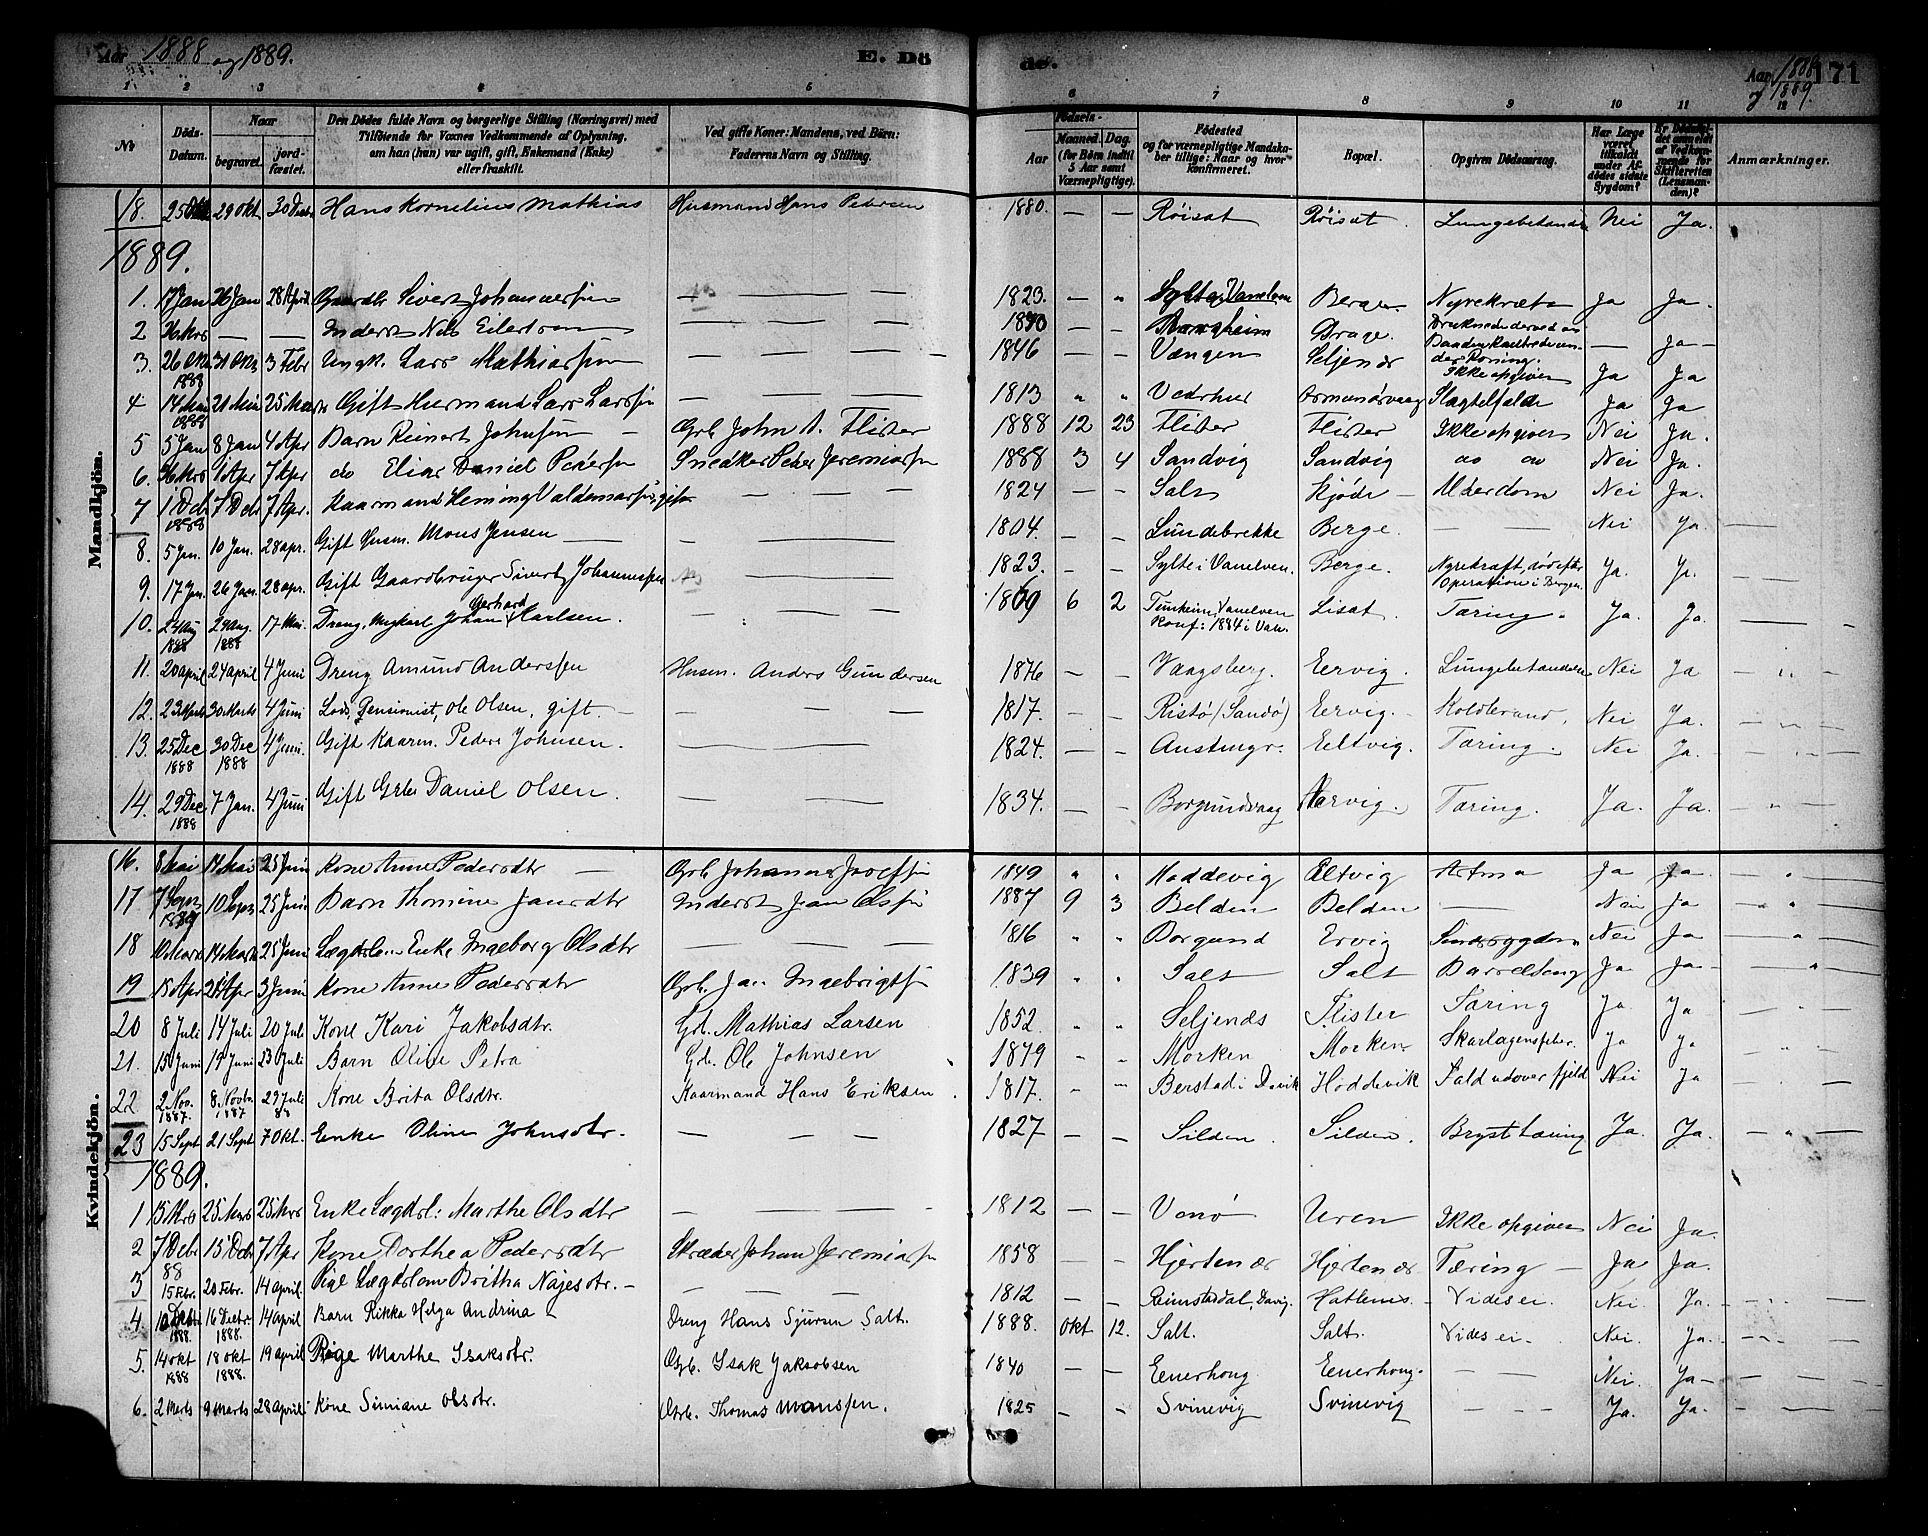 Aar 1888 og 1889.
E. Dö
de.
Aar 1888 og 1889.
171
1 2 3 4 5 6 7 8 9 10 11 12
No
Döds-Datum.
Naar
begravet.
jordfæstet.
Den Dödes fulde Navn og borgerlige Stilling (Næringsvei) med Tilföiende for Voxnes Vedkommende af Oplysning, om han (hun) var ugift, gift, Enkemand (Enke) eller fraskilt.
Ved gifte Koner: Mandens, ved Börn: Faderens Navn og Stilling.
Födsels-
Aar
Maaned. Dag.
(for Börn indtil 5 Aar samt Værnepligtige).
Födested og for værnepligtige Mandskaber tillige: Naar og hvor konfirmeret.
Bopæl.
Opgiven Dödsaarsag.
Har Læge været tilkaldt under Afdödes sidste Sygdom?
Er Dödsfaldet anmeldt af Vedkommende for Skifteretten (Lensmanden)?
Anmærkninger.
Mandkjön.
18. 25 Okt 29 Okt 30 Decbr Hans Kornelius Mathias Husmand Hans Petersen 1880. — — Röisæt Röisæt. Lungebetændelse Nei Ja.
1889.
1. 17 Jan 26 Jan 28 April Gaardbr Sivert Johannessen — — — 1823. — " Sylte, Vanelven Berge Nyrekræft Ja Ja. —
2 26 Mrs — — Inderst Nils Eilertsen — — — 1840 — — Drage. Druknede derved at Baaden kantrede under Roning. — Ja —
3. 26 Okt 1888 31 Okt 3 Febr Ungk. Lars Mathiassen — — — 1846 — — Vængen Seljenær Ikke opgiven Ja Ja
4 14 Mai 1888 21 Mai 25 Mars Gift Husmand Lars Larssen — — — 1813 " " Vedrhus Ormundsvaag Slagtilfælde Ja Ja
5 5 Jan 8 Jan 4 Apr Barn Reinert Johnsen — Grb John A. Flister 1888 12 23 Flister Flister Ikke opgiven Nei Ja.
6. 26 Mrs 1 Apr 7 Apr do Elias Daniel Pedersen Snedker Peder Jeremiassen 1888 3 4 Sandvig Sandvig do do Nei Ja.
7 1 Debr 1888 7 Debr 7 Apr. Kaarmand Heming Valdemarsen, gift — — — 1824 — — Salt Skjöde — Alderdom Nei Ja.
8. 5 Jan. 10 Jan. 28 apr. Gift Husm. Mons Jensen — — — 1804. — — Lundebrekke Berge. — — Nei Ja —
9. 17 Jan. 26 Jan. 28 apr. Gift Gaardbruger Sivert Johannessen — — 1823. — — Sylte i Vanelven. Berge. Nyrekræft, död efter Operation i Bergen. Ja. Ja.
10. 24 Aug 1888 29 Aug. 1888 17 Mai. Dreng, ungkarl Johan Gerhard Karlsen. — — — 1869 6 2 Vanelven Konf: 1884 i Van. Lisæt. Tæring. Ja. Ja.
11. 20 april 24 april 4 Juni Dreng Amund Anderssen Husm. Anders Gundersen 1876 — — Vaagsberg. Eervig. Lungebetændelse Nei Ja
12. 23 Marts 30 Marts 4 Juni Lods, Pensionist, Ole Olsen, gift. — — — 1817. — — Ristö (Sandö) Eervig. Koldbrand. Nei Ja.
13. 25 Dec 1888 30 Dec 1888 4 Juni. Gift Kaarm. Peder Johnsen. — — — 1824. — — Eeltvig. Tæring. Nei Ja.
14. 29 Dec 1888 7 Jan. 4 Juni Gift Grbr Daniel Olsen. — — — 1834. — — Borgundvaag Aarvig. Tæring. Ja. Ja.
Kvindekjön.
16. 8 Mai 14 Mai 25 Juni Kone Anne Pedersdtr — Grb Johannes Josefsen 1849 " " Haddevig Eltvig Astma Ja Ja.
17 7 Septr 10 Septr 25 Juni Barn Thomine Jansdtr Inderst Jan Olssen 1887 9 3 Belden Belden — Nei Ja
18 10 Mars 14 Marts 25 Juni Lægdsl. Enke Ingeborg Olsdtr — — — 1816 " " Borgund Ervig Sindssygdom Nei Ja
19 15 Apr 21 Apr 3 Juni Kone Anne Pedersdtr Grb. Jan Ingebrigtsen 1839 " " Salt Salt Barselseng Ja Ja
20 8 Juli 14 Juli 20 Juli Kone Kari Jakobsdtr. Gb. Mathias Larsen 1852. " " Seljenæs Flister Tæring Ja Ja
21. 15 Juni 19 Juni 23 Juli Barn Oline Petra Gb. Ole Johnsen 1879 " " Morken Morken Skarlagensfeber Ja Ja
22 2 Nov. 1887. 8. Novbr 1887 29 Juli 88 Kone Brita Olsdtr. Kaarmand Hans Eriksen 1817. " " Berstad i Davik Hoddevik Fald udover fjeld Nei Ja
23 15 Sept 21 Sept 7 Okt. Enke Oline Johnsdtr. — — — 1827 — — Silden. Silden. Brysttæring Ja. Ja.
1889.
1 15 Mrs 25 Mars 25 Mrs Enke Lægdsl: Marthe Olsdtr — — — 1812 — — Venö Uren Ikke opgiven Nei Ja.
2 7 Debr 88 15 Debr 7 Apr Kone Dorthea Pedersdtr Skræder Johan Jeremiassen 1858 — — Hjertenær Hjertenær Tæring — Ja Ja.
3 15 Febr. 20 Febr. 14 april. Pige Lægdslem Britha Najesdtr. — — — — 1812 — — Rimstaddal, Davig. Hatlenes. Vides ei. Nei. Ja.
4. 10 Decbr 1888. 16 Decbr. 1888. 14 april Barn Rikka Helga Andrina Dreng Hans Sjursen Salt. 1888. Okt 12. Salt. Salt. Vides ei — Nei. Ja
5. 14 okt 1888 18 okt 1888. 19 april Pige Marthe Isaksdtr. Grb. Isak Jakobsen 1840 — — Eenerhoug Eenerhoug. — — Nei. Ja —
6. 2 Marts 9 Marts 28 april Kone Simiane Olsdtr. Grb. Thomas Monssen. 1825 — — Svinevig Svinevig — — Ja. Ja.